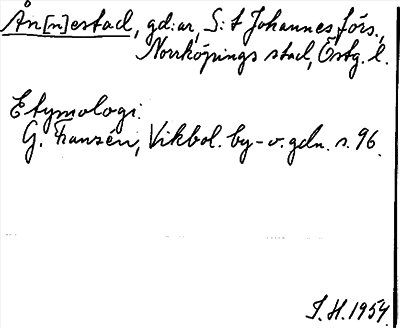 Ån[n]estad, gd:ar, S:t Johannes förs.,
Norrköpings stad, Östg. l.
Etymologi:
G. Franzén, Vikbol. by- o. gdn. s. 96.
I. H. 1954.